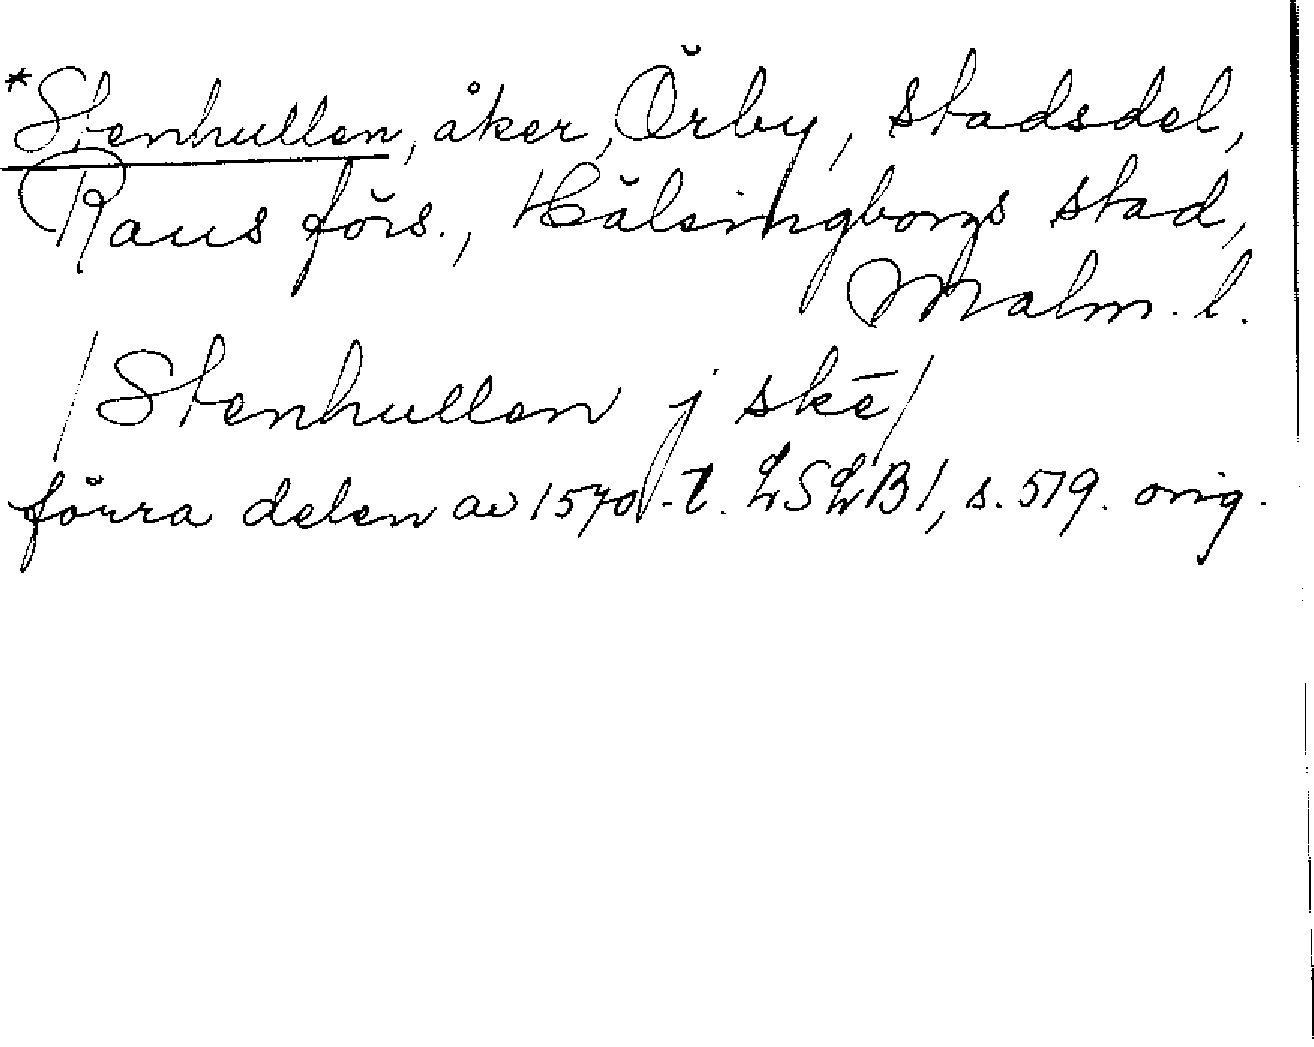 *Stenhullen, åker, Örby, stadsdel,
Raus förs., Hälsingborgs stad,
Malm. l.
/Stenhullen j skē/
förra delen av 1570-t. LSLB1, s. 519. orig.